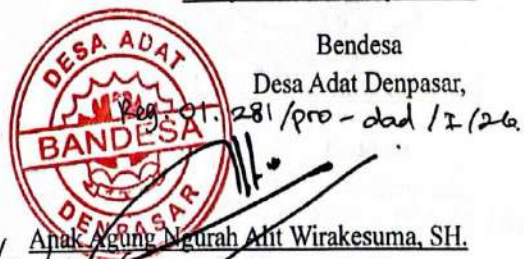 DESA ADAT
Bendesa
Desa Adat Denpasar,
Reg. 01. 281/pro-dad/I/26.
BANDESA
DENPASAR
Anak Agung Ngurah Alit Wirakesuma, SH.